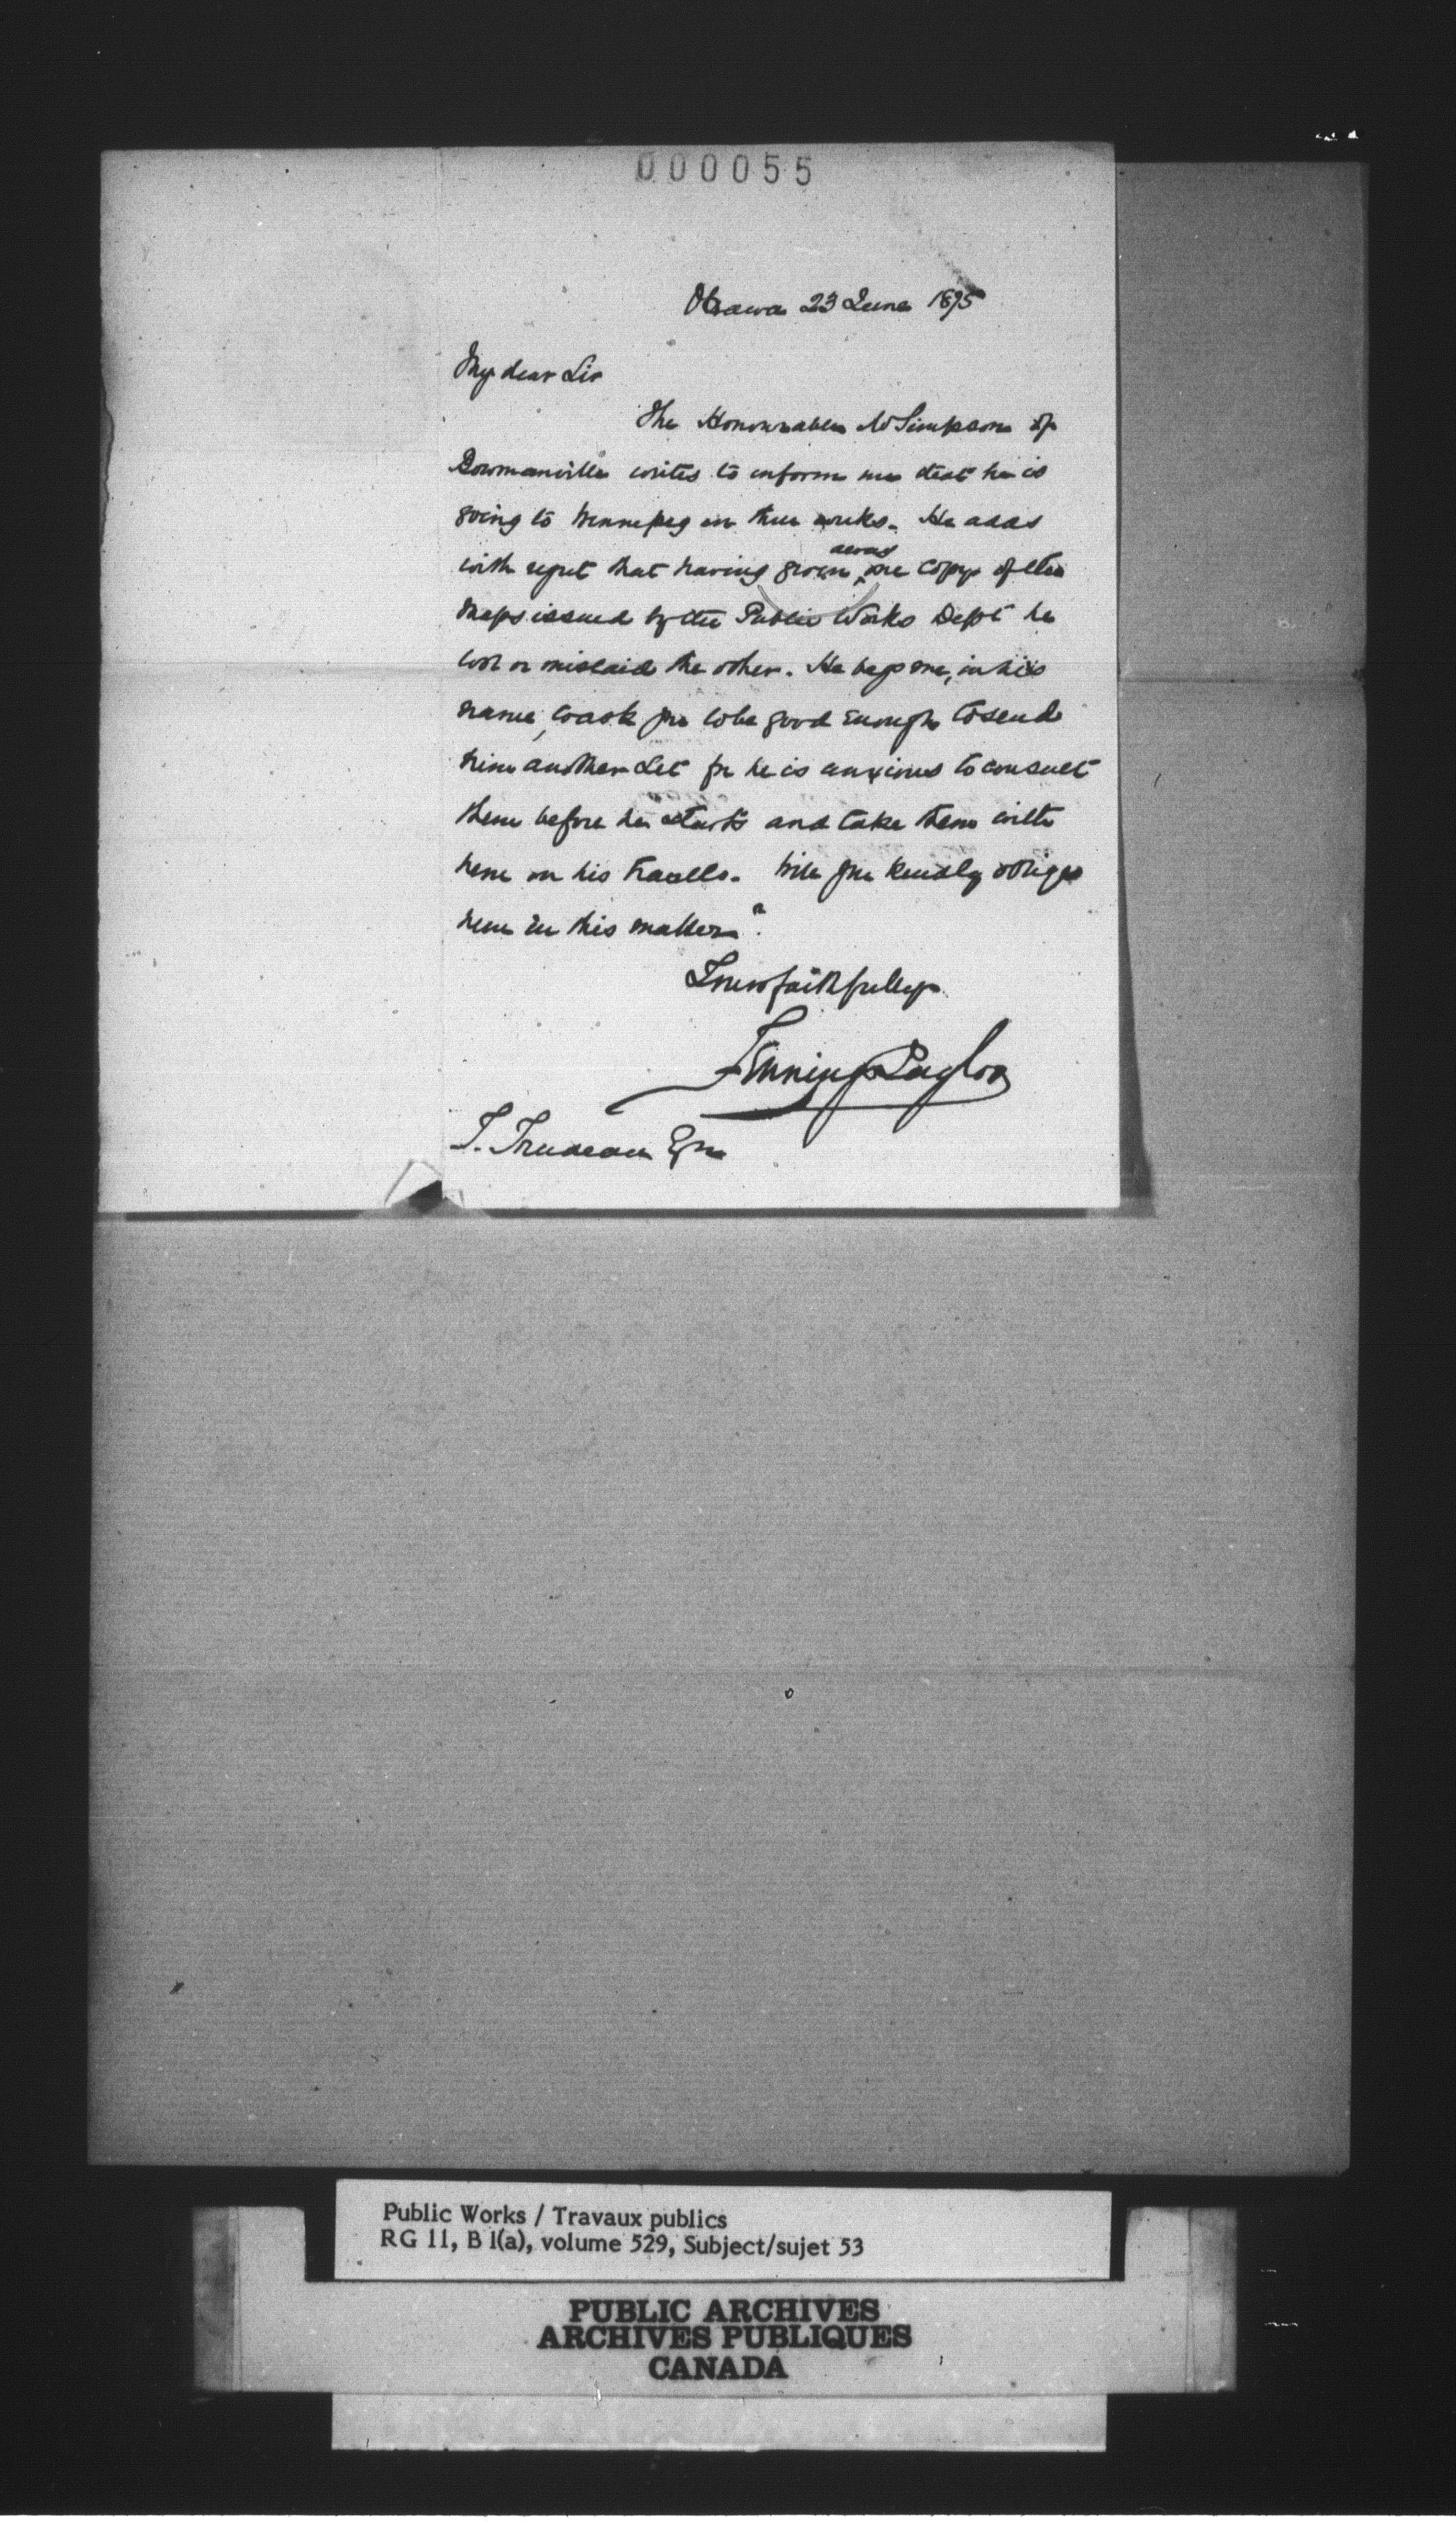 000055
Ottawa 23 June 1875
My dear Sir
The Honourable Mr Simpson of
Bowmanville writes to inform me that he is
going to Winnipeg in three weeks. He adds
with regret that having given away one copy of the
Maps issued by the Public Works Dept he
lost or mislaid the other. He begs me, in his
name, to ask you to be good enough to send
him another Set for he is anxious to consult
them before he starts and take them with
him on his travells. Will you kindly oblige
him in this matter?
Yours faithfully
Fennings Taylor
T. Trudeau Esqr
Public Works / Travaux publics
RG 11, B 1(a), volume 529, Subject/sujet 53
PUBLIC ARCHIVES
ARCHIVES PUBLIQUES
CANADA